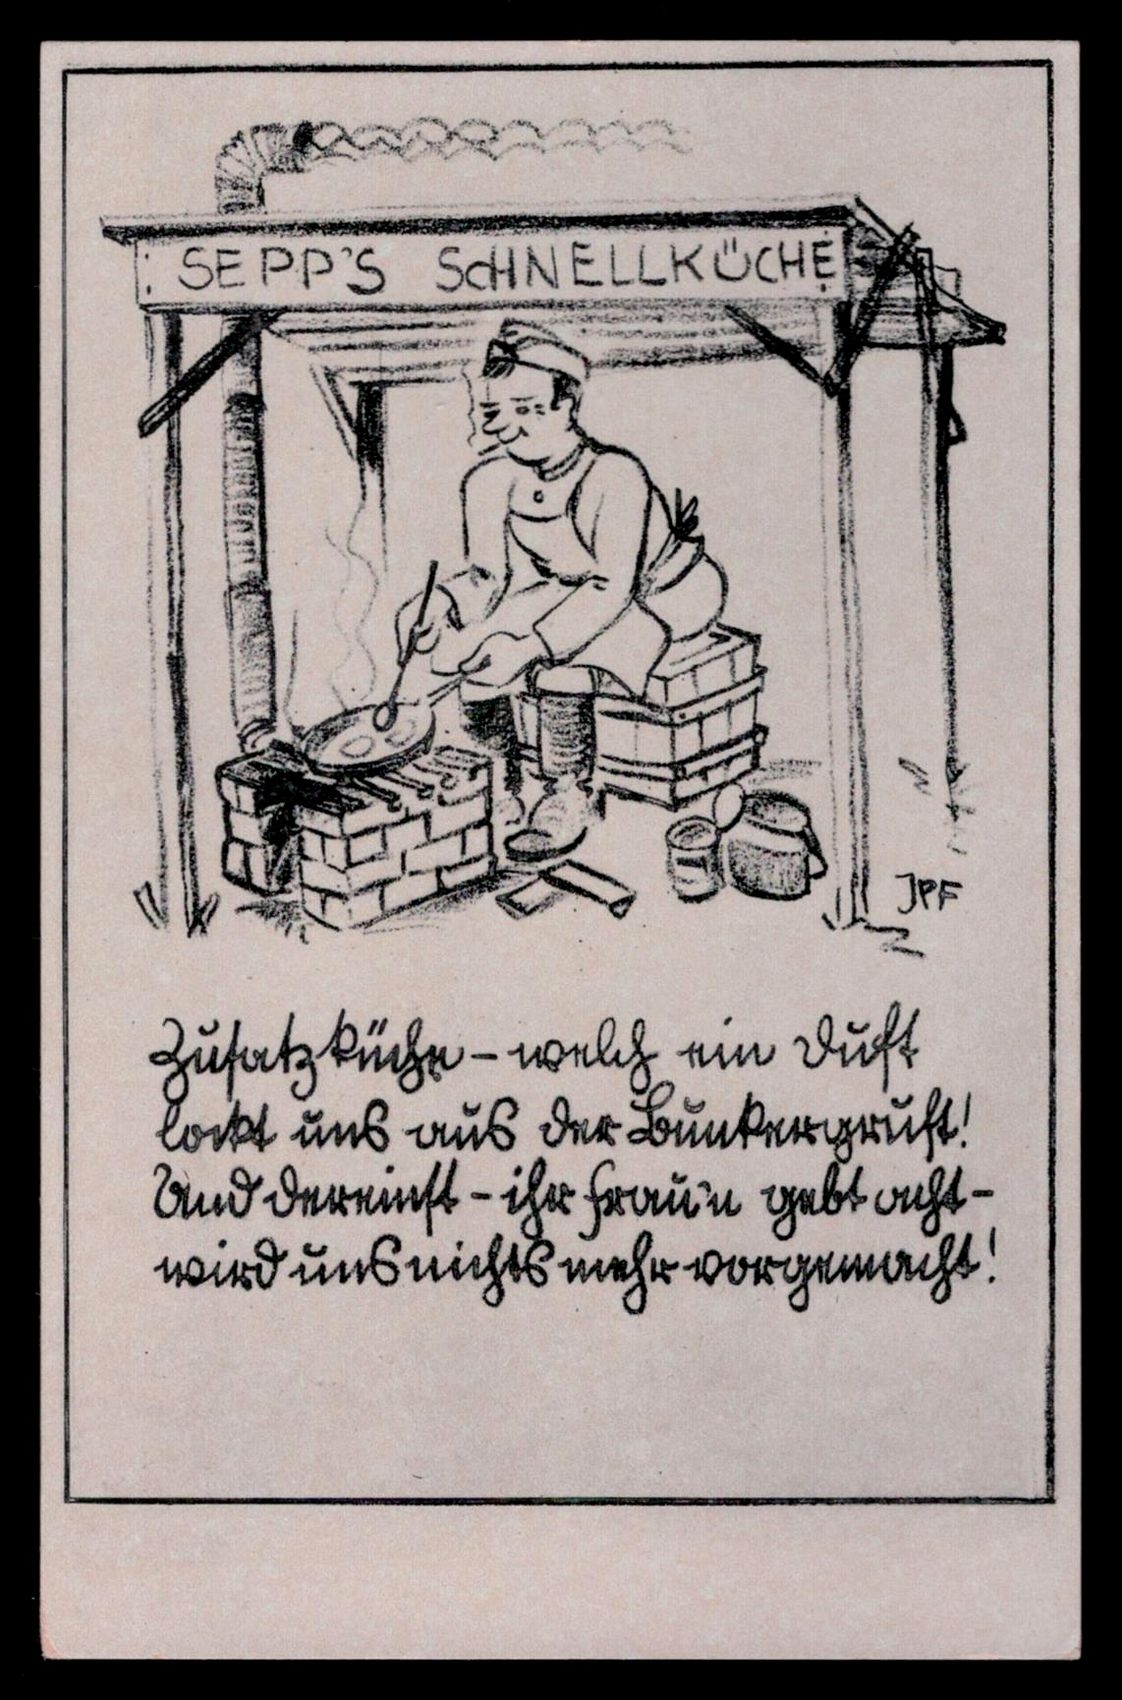 SEPP'S SCHNELLKÜCHE
JPF
Zusatzküche – welch ein Duft
lockt uns aus der Bunkergruft!
Und dereinst – ihr Frau'n gebt acht –
wird uns nichts mehr vorgemacht!